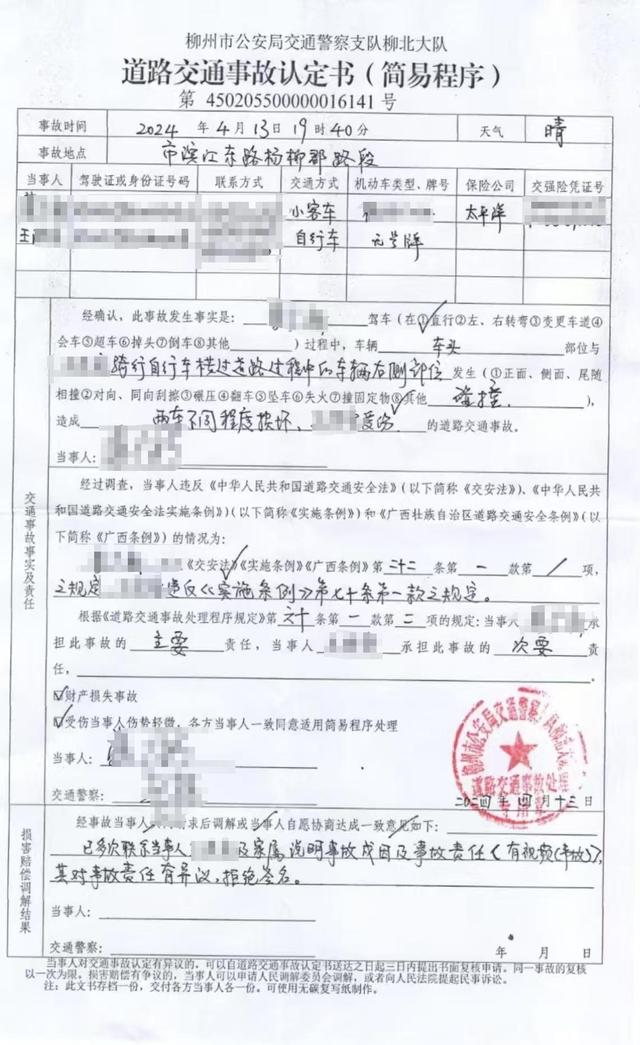 柳州市公安局交通警察支队柳北大队
道路交通事故认定书（简易程序）
第 450205500000016141 号
事故时间 2024 年 4 月 13 日 19 时 40 分 天气 晴
事故地点 市滨江东路杨柳郡路段
当事人 驾驶证或身份证号码 联系方式 交通方式 机动车类型、牌号 保险公司 交强险凭证号
小客车 太平洋
王 自行车 无号牌
交通事故事实及责任
经确认，此事故发生事实是： 驾车（在①直行②左、右转弯③变更车道④
会车⑤超车⑥掉头⑦倒车⑧其他 ）过程中，车辆 车头 部位与
跨行自行车横过道路过程中的车辆右侧部位 发生（①正面、侧面、尾随
相撞②对向、同向刮擦③碾压④翻车⑤坠车⑥失火⑦撞固定物⑧其他 碰撞 ），
造成 两车不同程度损坏、 受伤 的道路交通事故。
当事人：
经过调查，当事人违反《中华人民共和国道路交通安全法》（以下简称《交安法》）、《中华人民共
和国道路交通安全法实施条例》）（以下简称《实施条例》）和《广西壮族自治区道路交通安全条例》（以
下简称《广西条例》）的情况为：
《交安法》《实施条例》《广西条例》第 二十二 条第 一 款第 / 项，
之规定 违反《实施条例》第七十条第一款之规定。
根据《道路交通事故处理程序规定》第 六十 条第 一 款第 二 项的规定：当事人 承
担此事故的 主要 责任，当事人 承担此事故的 次要 责
任，
☑财产损失事故
☑受伤当事人伤势轻微，各方当事人一致同意适用简易程序处理
当事人：
交通警察： 二〇二四年四月十三日
柳州市公安局交通警察支队柳北大队
道路交通事故处理
专用章
损害赔偿调解结果
经事故当事人 请求后调解或当事人自愿协商达成一致意见如下：
已多次联系当事人 及家属说明事故成因及事故责任（有视频（事故）），
其对事故责任有异议，拒绝签名。
当事人：
交通警察： 年 月 日
当事人对交通事故认定有异议的，可以自道路交通事故认定书送达之日起三日内提出书面复核申请。同一事故的复核
以一次为限。损害赔偿有争议的，当事人可以申请人民调解委员会调解，或者向人民法院提起民事诉讼。
注：此文书存档一份，交付各方当事人各一份。可使用无碳复写纸制作。